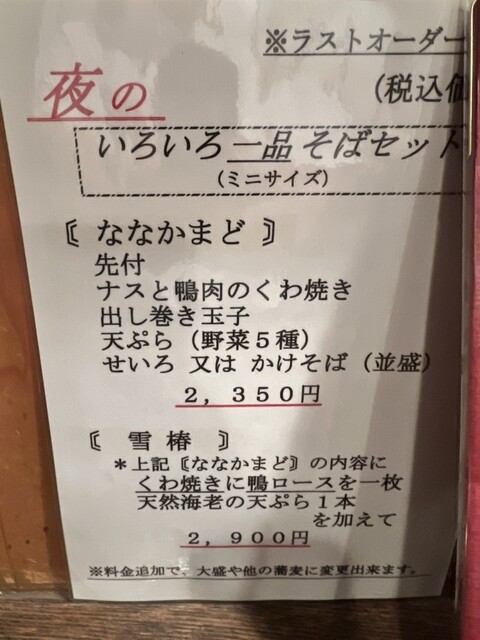 ※ラストオーダー
(税込価
夜の
いろいろ一品そばセット
(ミニサイズ)
〘 ななかまど 〙
先付
ナスと鴨肉のくわ焼き
出し巻き玉子
天ぷら（野菜５種）
せいろ 又は かけそば（並盛）
２，３５０円
〘 雪 椿 〙
＊上記〘ななかまど〙の内容に
くわ焼きに鴨ロースを一枚
天然海老の天ぷら１本
を加えて
２，９００円
※料金追加で、大盛や他の蕎麦に変更出来ます。